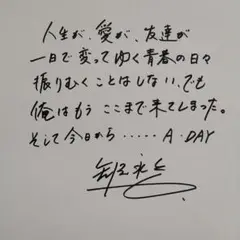 人生が、愛が、友達が
一日で変ってゆく青春の日々
振りむくことはしない、でも
俺はもうここまで来てしまった。
そして今日から……A・DAY